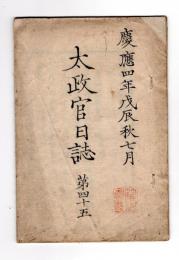 慶應四年戊辰秋七月
太政官日誌 第四十五